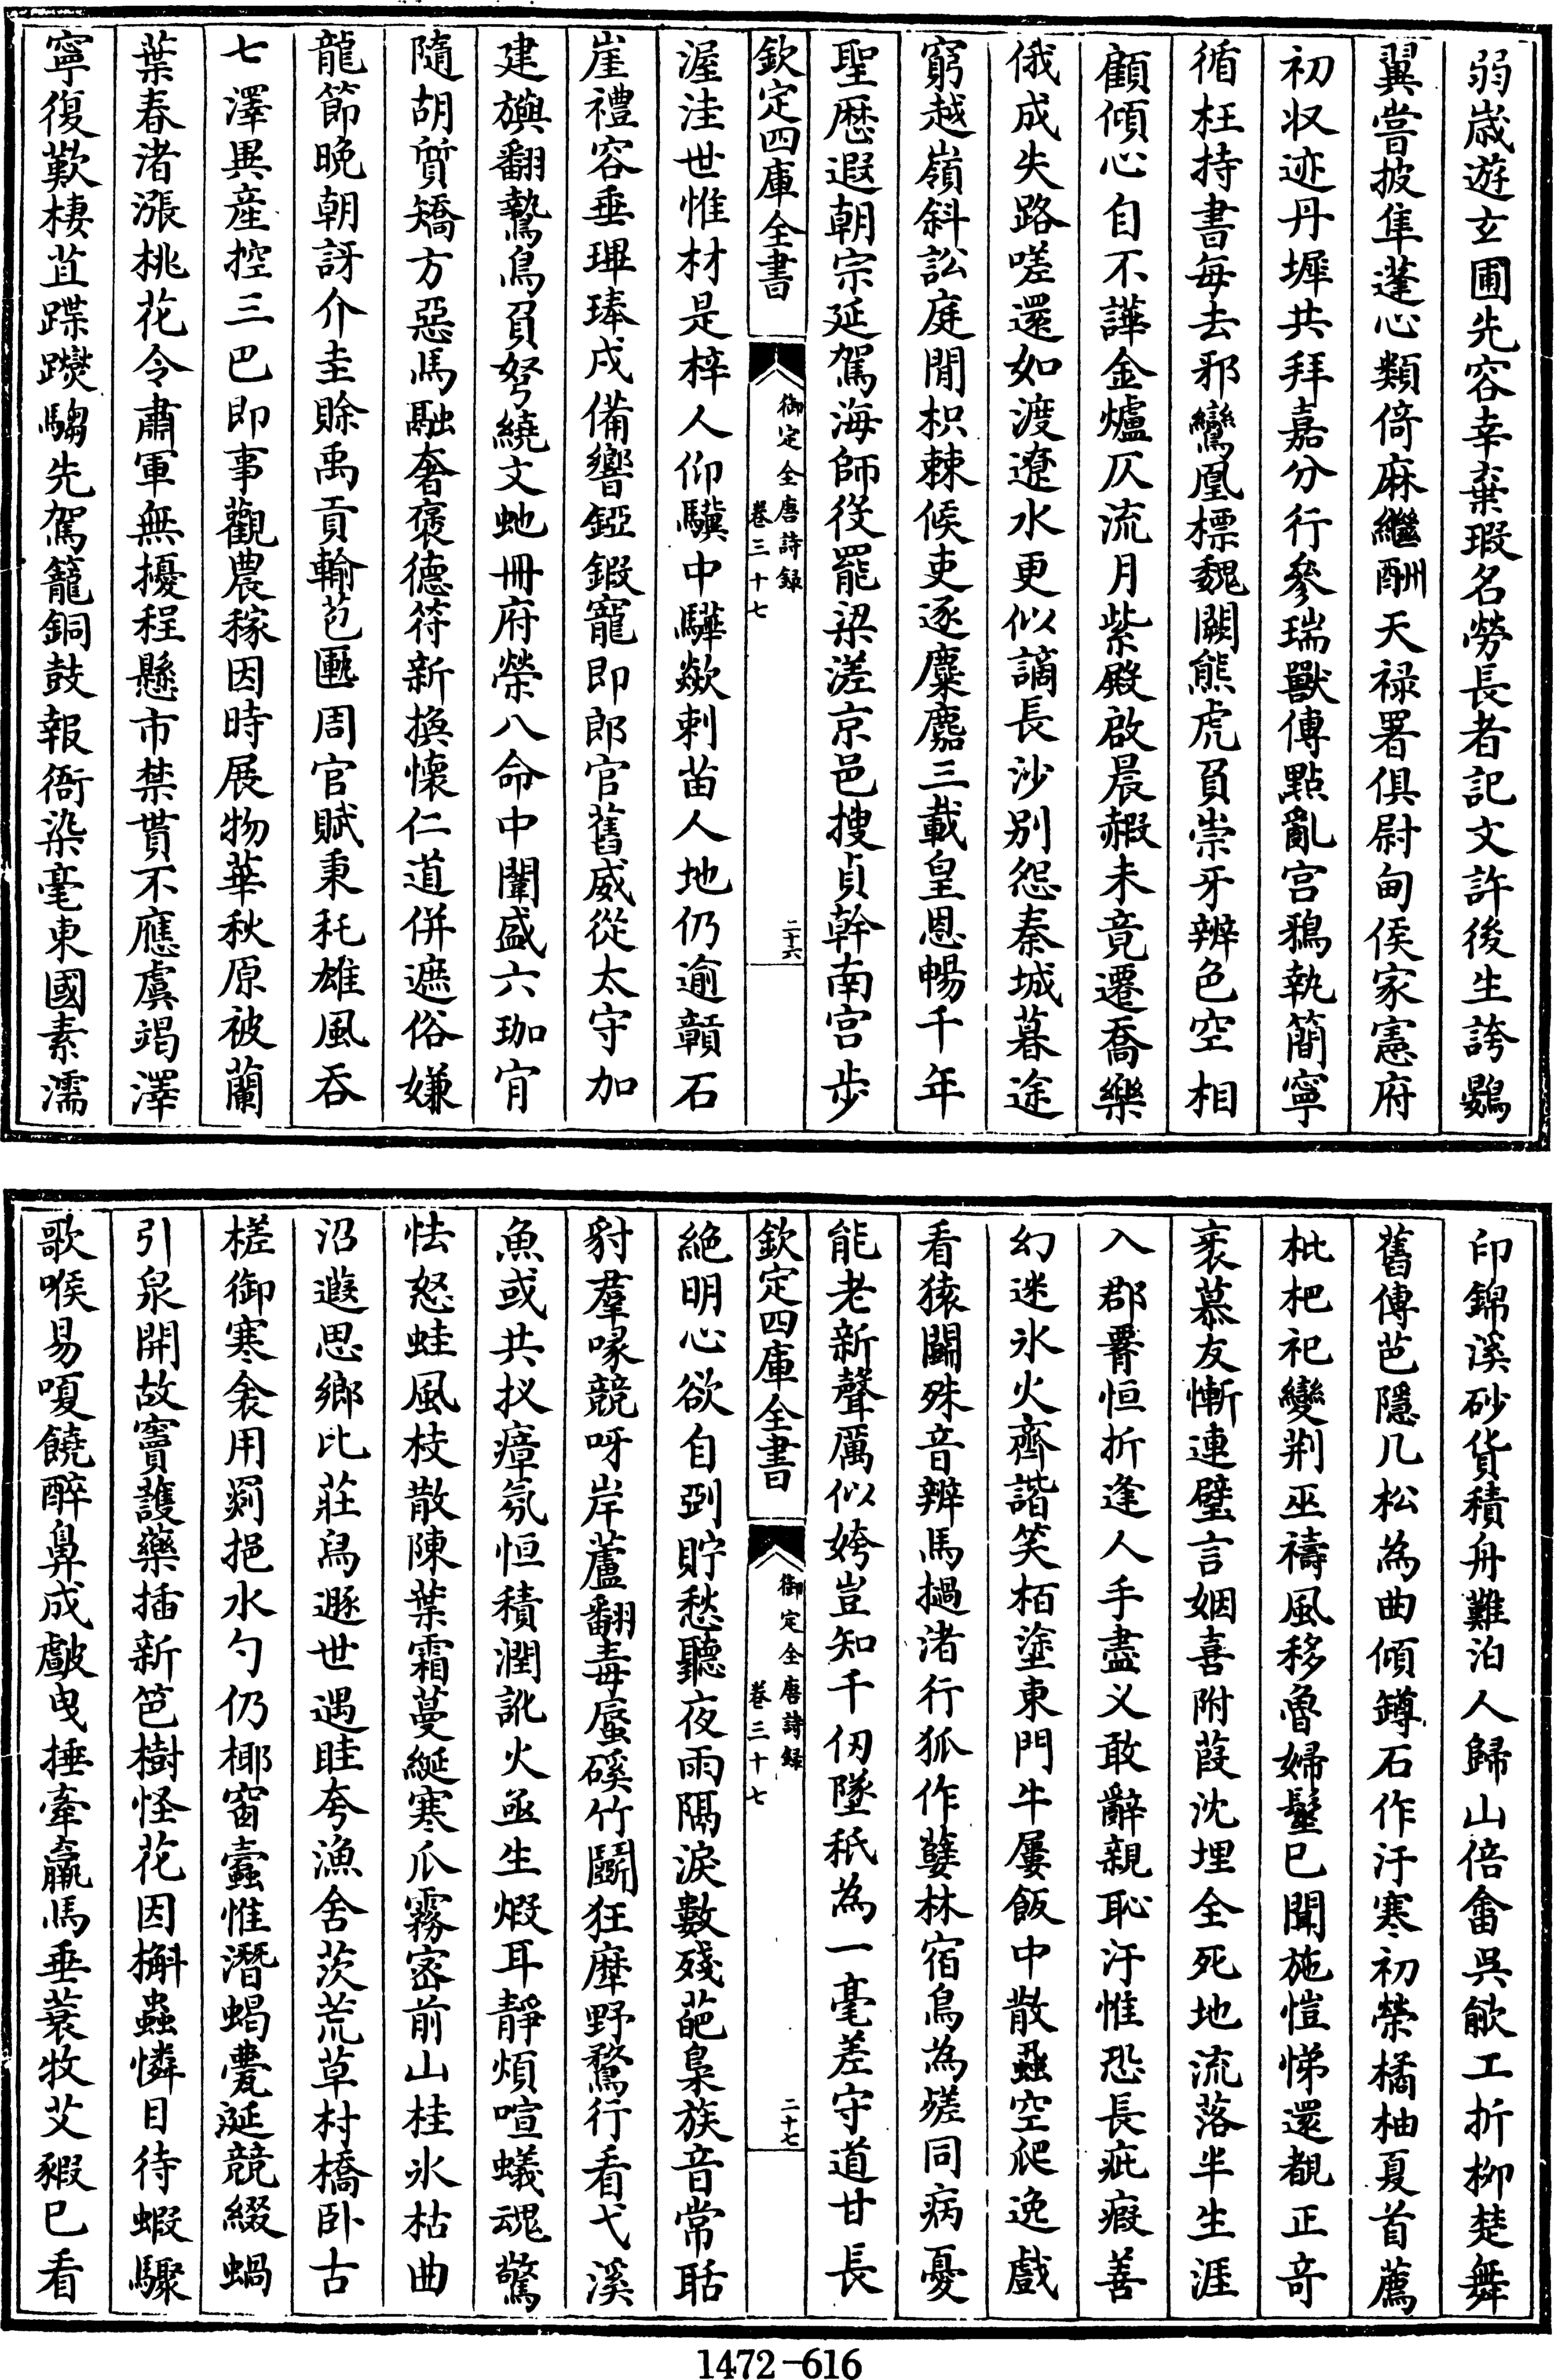 弱歳遊玄圃先容幸棄瑕名勞長者記文許後生誇鷃
翼嘗披隼蓬心類倚麻繼酬天禄署俱尉甸侯家憲府
初収迹丹墀共拜嘉分行參瑞獸傳點亂宮鴉執簡寧
循枉持書每去邪鸞凰標魏闕熊虎負崇牙辨色空相
顧傾心自不譁金爐仄流月紫殿啟晨赮未竟遷喬樂
俄成失路嗟還如渡遼水更似謫長沙別怨秦城暮途
窮越嶺斜訟庭閒枳棘候吏逐麋麚三載皇恩暢千年
聖歴遐朝宗延駕海師役罷梁溠京邑搜貞幹南宮步
欽定四庫全書
御定全唐詩録
卷三十七
二十六
渥洼世惟材是梓人仰驥中驊歘刺苗人地仍逾贛石
崖禮容垂琕琫戍備響錏鍜寵即郎官舊威從太守加
建旟翻鷙鳥負弩繞文虵冊府榮八命中闈盛六珈肎
隨胡質矯方惡馬融奢褒德符新換懷仁道併遮俗嫌
龍節晚朝訝介圭賒禹貢輸苞匭周官賦秉秅雄風吞
七澤異産控三巴即事觀農稼因時展物華秋原被蘭
葉春渚漲桃花令肅軍無擾程懸市禁貰不應虞竭澤
寧復歎棲苴蹀躞騶先駕籠銅鼓報衙染毫東國素濡
印錦溪砂貨積舟難泊人歸山倍畬吳歈工折栁楚舞
舊傳芭隱几松為曲傾罇石作汙寒初榮橘柚夏首薦
枇杷祀變荆巫禱風移魯婦髽已聞施愷悌還覩正奇
衺慕友慚連璧言姻喜附葭沈埋全死地流落半生涯
入郡腎恒折逢人手盡义敢辭親恥汙惟恐長疵瘕善
幻迷氷火齊諧笑栢塗東門牛屢飯中散蝨空爬逸戲
看猿鬭殊音辨馬檛渚行狐作孽林宿鳥為㾺同病憂
能老新聲厲似姱豈知千仞墜秖為一毫差守道甘長
欽定四庫全書
御定全唐詩録
卷三十七
二十七
絶明心欲自㓻貯愁聽夜雨隔淚數殘葩梟族音常聒
豺羣喙競呀岸蘆翻毒蜃磎竹鬭狂犘野鶩行看弋溪
魚或共扠瘴氛恒積潤訛火亟生煆耳靜煩喧蟻魂驚
怯怒蛙風枝散陳葉霜蔓綖寒瓜霧密前山桂氷枯曲
沼遐思鄉比莊舄遯世遇眭夸漁舍茨荒草村橋卧古
槎御寒衾用罽挹水勺仍椰窗蠹惟潛蝎甍涎競綴蝸
引泉開故竇護藥插新笆樹怪花因槲蟲憐目待蝦驟
歌喉易嗄饒醉鼻成皻曳捶牽羸馬垂蓑牧艾豭已看
1472-616